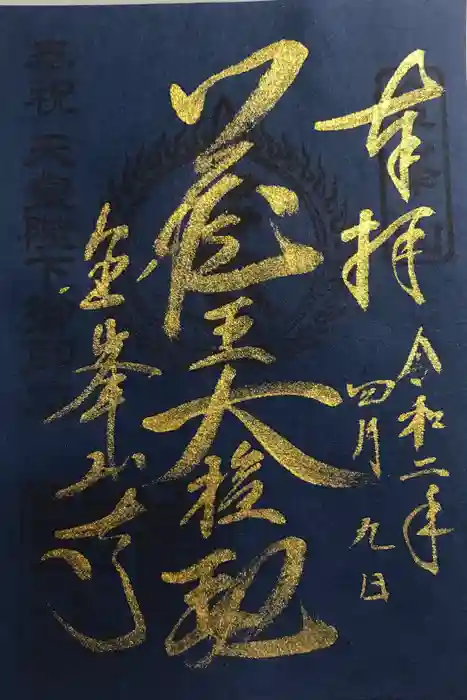 奉拝
令和二年
四月九日
蔵王大権現
金峯山寺
奉祝 天皇陛下御即